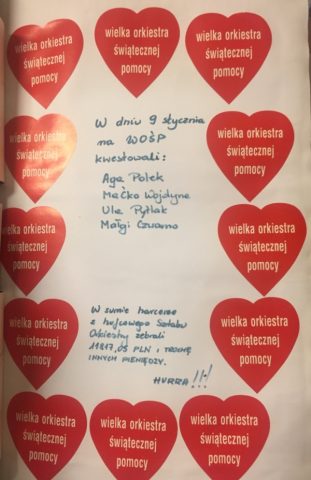 wielka orkiestra
świątecznej
pomocy
wielka orkiestra
świątecznej
pomocy
wielka orkiestra
świątecznej
pomocy
wielka orkiestra
świątecznej
pomocy
W dniu 9 stycznia
na WOŚP
kwestowali:
Aga Polek
Maćko Wojdyna
Ula Pytlak
Małgi Czarno
wielka orkiestra
świątecznej
pomocy
wielka orkiestra
świątecznej
pomocy
wielka orkiestra
świątecznej
pomocy
wielka orkiestra
świątecznej
pomocy
W sumie harcerze
z hufcowego Sztabu
Orkiestry zebrali
11817,05 PLN i TROCHĘ
INNYCH PIENIĘDZY.
HURRA!!!
wielka orkiestra
świątecznej
pomocy
wielka orkiestra
świątecznej
pomocy
wielka orkiestra
świątecznej
pomocy
wielka orkiestra
świątecznej
pomocy